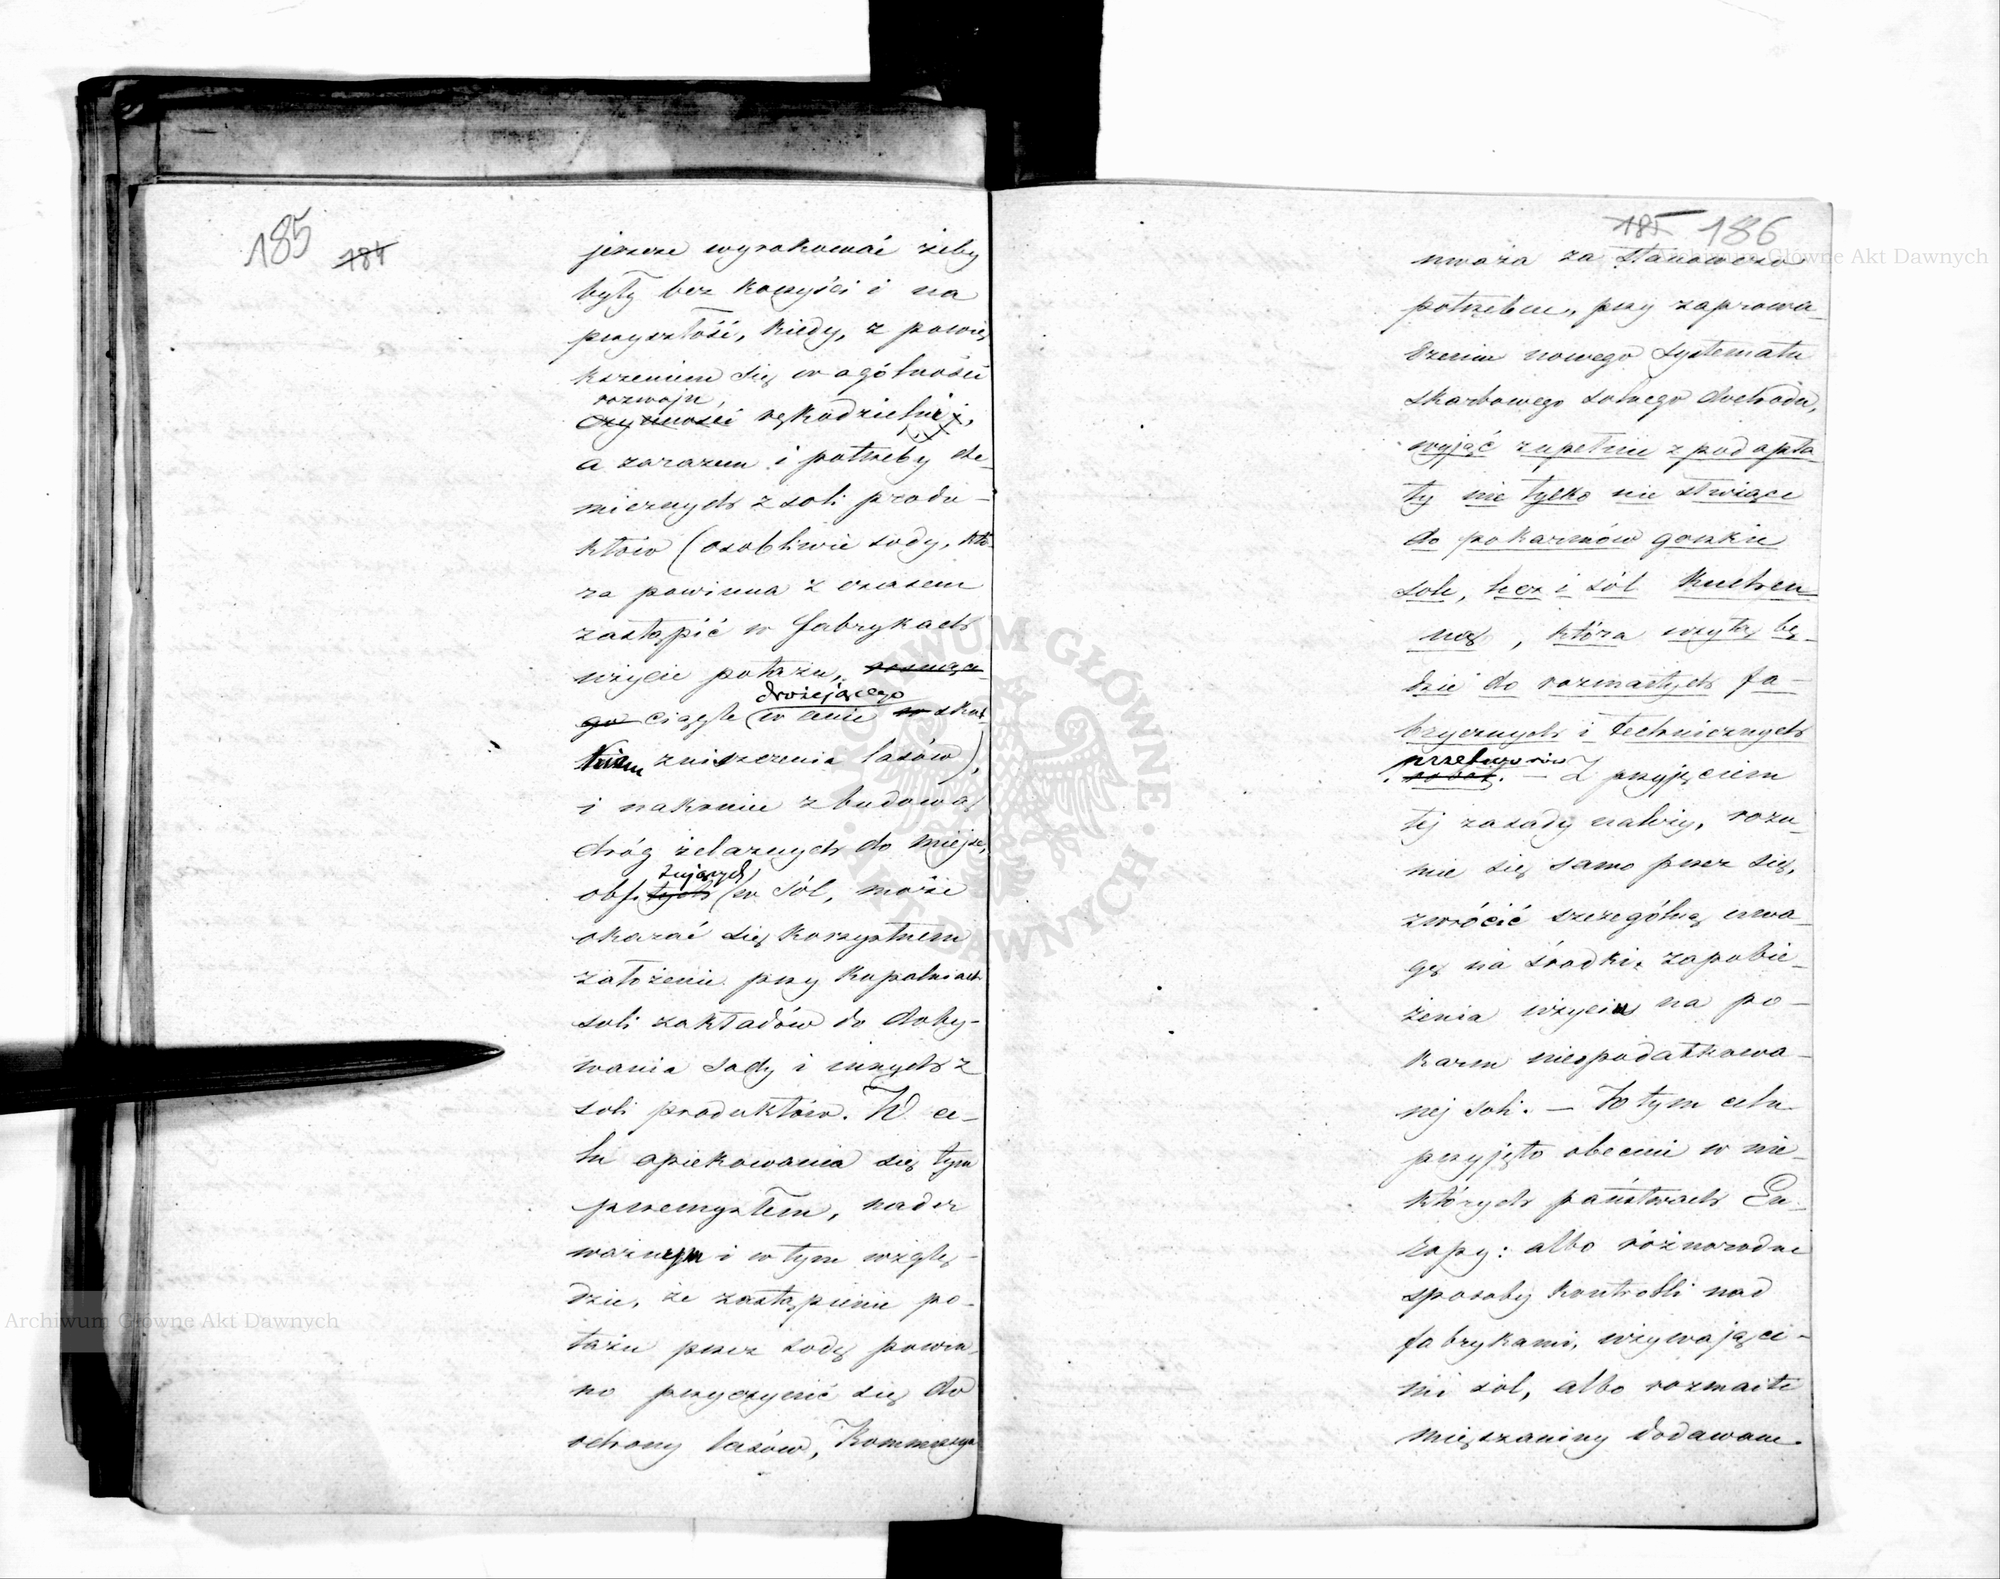 185 184
jeszcze wyrokować żeby
były bez korzyści i na
przyszłość, kiedy, z powię
kszeniem się w ogólności
rozwoju,
czynności rękodzielni,
a zarazem i potrzeby che-
micznych z soli produ-
któw (osobliwie sody, któ-
ra powinna z czasem
zastąpić w fabrykach
użycie potażu, rosnące
drożejącego
go ciągle w cenie w skut
kiem zniszczenia lasów),
i nakonie zbudową
dróg żelaznych do miejsc,
tujących
obfitych w sól, może
okazać się korzystnem
założenie przy kopalniach
soli zakładów do doby-
wania sody i innych z
soli produktów. W ce-
lu opiekowania się tym
przemysłem, nader
ważnym i w tym wzglę-
dzie, że zastąpienie po-
tażu przez sodę powin-
no przyczynić się do
ochrony lasów, Kommissya
185 186
uważa za stanowczo
potrzebne, przy zaprowa-
dzeniu nowego systematu
skarbowego solnego dochodu,
wyjąć zupełnie z pod opła-
ty nie tylko nie służące
do pokarmów gorzkie
sole, lecz i sól kuchen-
ną, która użytą bę-
dzie do rozmaitych fa-
brycznych i technicznych
przetworów
robót. — Z przyjęciem
tej zasady należy, rozu-
mie się samo przez się,
zwrócić szczególną uwa-
gę na środki, zapobie-
żenia użyciu na po-
karm nieopodatkowa-
nej soli. — W tym celu
przyjęto obecnie w nie-
których państwach Eu-
ropy: albo różnorodne
sposoby kontrolli nad
fabrykami, używające-
mi sól, albo rozmaite
mięszaniny dodawane.
Archiwum Główne Akt Dawnych
Archiwum Główne Akt Dawnych
ARCHIWUM GŁÓWNE AKT DAWNYCH